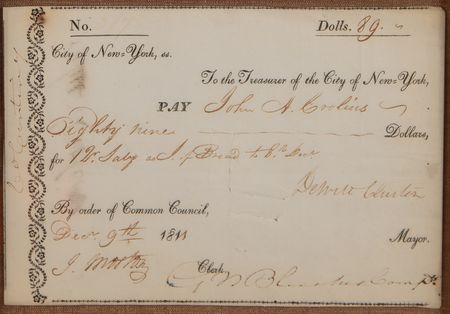 No. Dolls. 89.
City of New=York, ss.
To the Treasurer of the City of New=York,
PAY John A. Crolius
Eighty nine Dollars,
for Salry as I. of Bread to
DeWitt Clinton
By order of Common Council,
Decr. 9th 1811 Mayor.
J. Morton Clerk
Comp